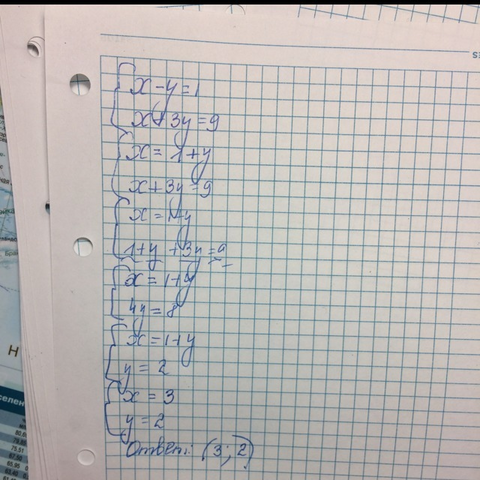 x - y = 1
x + 3y = 9
x = 1 + y
x + 3y = 9
x = 1 + y
1 + y + 3y = 9
x = 1 + y
4y = 8
x = 1 + y
y = 2
x = 3
y = 2
Ответ: (3; 2)